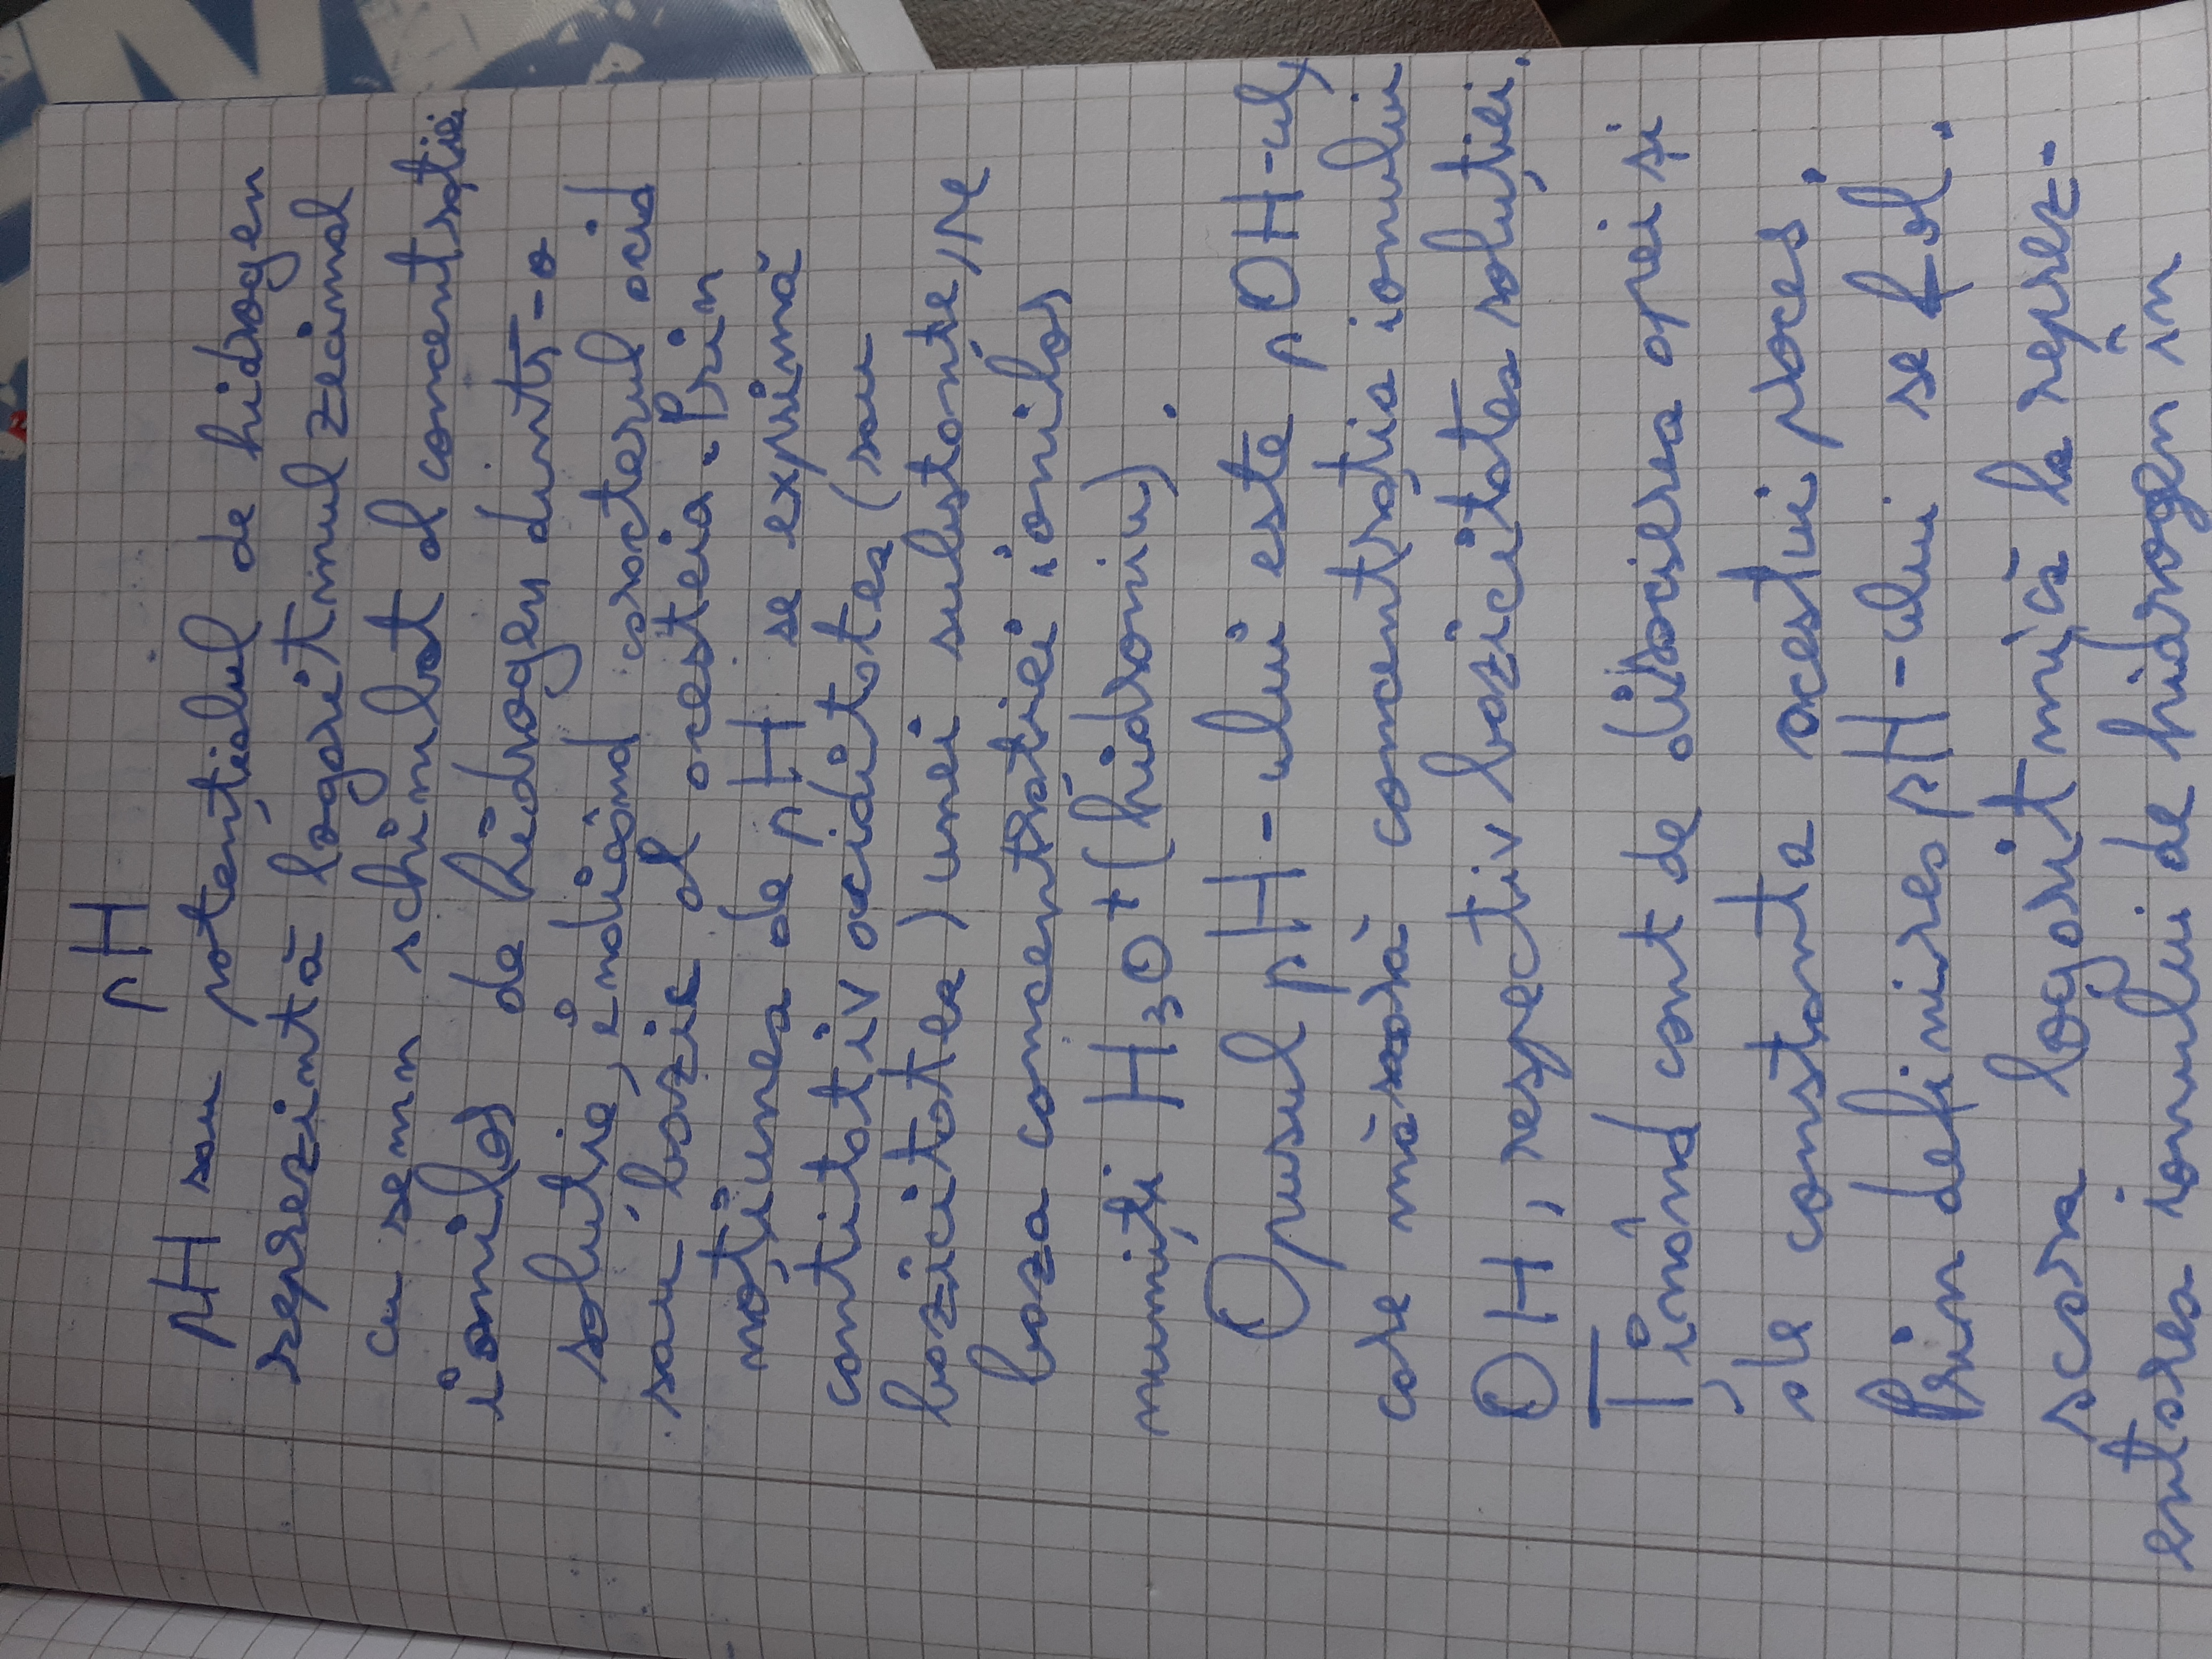 pH
pH sau potențialul de hidrogen
reprezintă logaritmul zecimal
cu semn schimbat al concentrației
ionilor de hidrogen dintr-o
soluție, indicând caracterul acid
sau bazic al acesteia. Prin
noțiunea de pH se exprimă
cantitativ aciditatea (sau
bazicitatea) unei substanțe, pe
baza concentrației ionilor
numiți H3O+ (hidroniu).
Opusul pH-ului este pOH-ul,
care măsoară concentrația ionului
OH, respectiv bazicitatea soluției.
Ținând cont de disocierea apei și
de constanta acestui proces.
Prin definirea pH-ului se fol.
scara logaritmică la reprez-
entarea ionului de hidrogen în